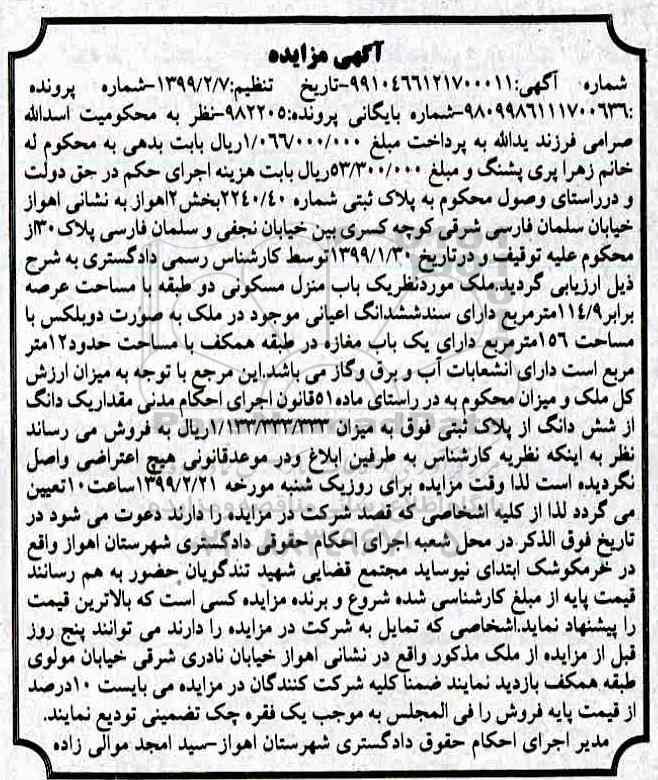 آگهی مزایده
شماره آگهی:۹۹۱۰۴۶۶۱۲۱۷۰۰۰۱۱-تاریخ تنظیم:۱۳۹۹/۲/۷-شماره پرونده
:۹۸۰۹۹۸۶۱۱۱۷۰۰۶۳۶-شماره بایگانی پرونده:۹۸۲۲۰۵-نظر به محکومیت اسدالله
صرامی فرزند یدالله به پرداخت مبلغ ۱/۰۶۶/۰۰۰/۰۰۰ریال بابت بدهی به محکوم له
خانم زهرا پری پشنگ و مبلغ ۵۳/۳۰۰/۰۰۰ریال بابت هزینه اجرای حکم در حق دولت
و درراستای وصول محکوم به پلاک ثبتی شماره ۲۲۴۰/۴۰بخش۲اهواز به نشانی اهواز
خیابان سلمان فارسی شرقی کوچه کسری بین خیابان نجفی و سلمان فارسی پلاک۳۰از
محکوم علیه توقیف و درتاریخ ۱۳۹۹/۱/۳۰توسط کارشناس رسمی دادگستری به شرح
ذیل ارزیابی گردید.ملک موردنظریک باب منزل مسکونی دو طبقه با مساحت عرصه
برابر۱۱۴/۹مترمربع دارای سندششدانگ اعیانی موجود در ملک به صورت دوبلکس با
مساحت ۱۵۶مترمربع دارای یک باب مغازه در طبقه همکف با مساحت حدود۱۲متر
مربع است دارای انشعابات آب و برق وگاز می باشد.این مرجع با توجه به میزان ارزش
کل ملک و میزان محکوم به در راستای ماده۵۱قانون اجرای احکام مدنی مقداریک دانگ
از شش دانگ از پلاک ثبتی فوق به میزان ۱/۱۳۳/۳۳۳/۳۳۳ریال به فروش می رساند
نظر به اینکه نظریه کارشناس به طرفین ابلاغ ودر موعدقانونی هیچ اعتراضی واصل
نگردیده است لذا وقت مزایده برای روزیک شنبه مورخه ۱۳۹۹/۲/۲۱ساعت۱۰تعیین
می گردد لذا از کلیه اشخاصی که قصد شرکت در مزایده را دارند دعوت می شود در
تاریخ فوق الذکر در محل شعبه اجرای احکام حقوقی دادگستری شهرستان اهواز واقع
در خرمکوشک ابتدای نیوساید مجتمع قضایی شهید تندگویان حضور به هم رسانند
قیمت پایه از مبلغ کارشناسی شده شروع و برنده مزایده کسی است که بالاترین قیمت
را پیشنهاد نماید.اشخاصی که تمایل به شرکت در مزایده را دارند می توانند پنج روز
قبل از مزایده از ملک مذکور واقع در نشانی اهواز خیابان نادری شرقی خیابان مولوی
طبقه همکف بازدید نمایند ضمنا کلیه شرکت کنندگان در مزایده می بایست ۱۰درصد
از قیمت پایه فروش را فی المجلس به موجب یک فقره چک تضمینی تودیع نمایند.
مدیر اجرای احکام حقوق دادگستری شهرستان اهواز-سید امجد موالی زاده